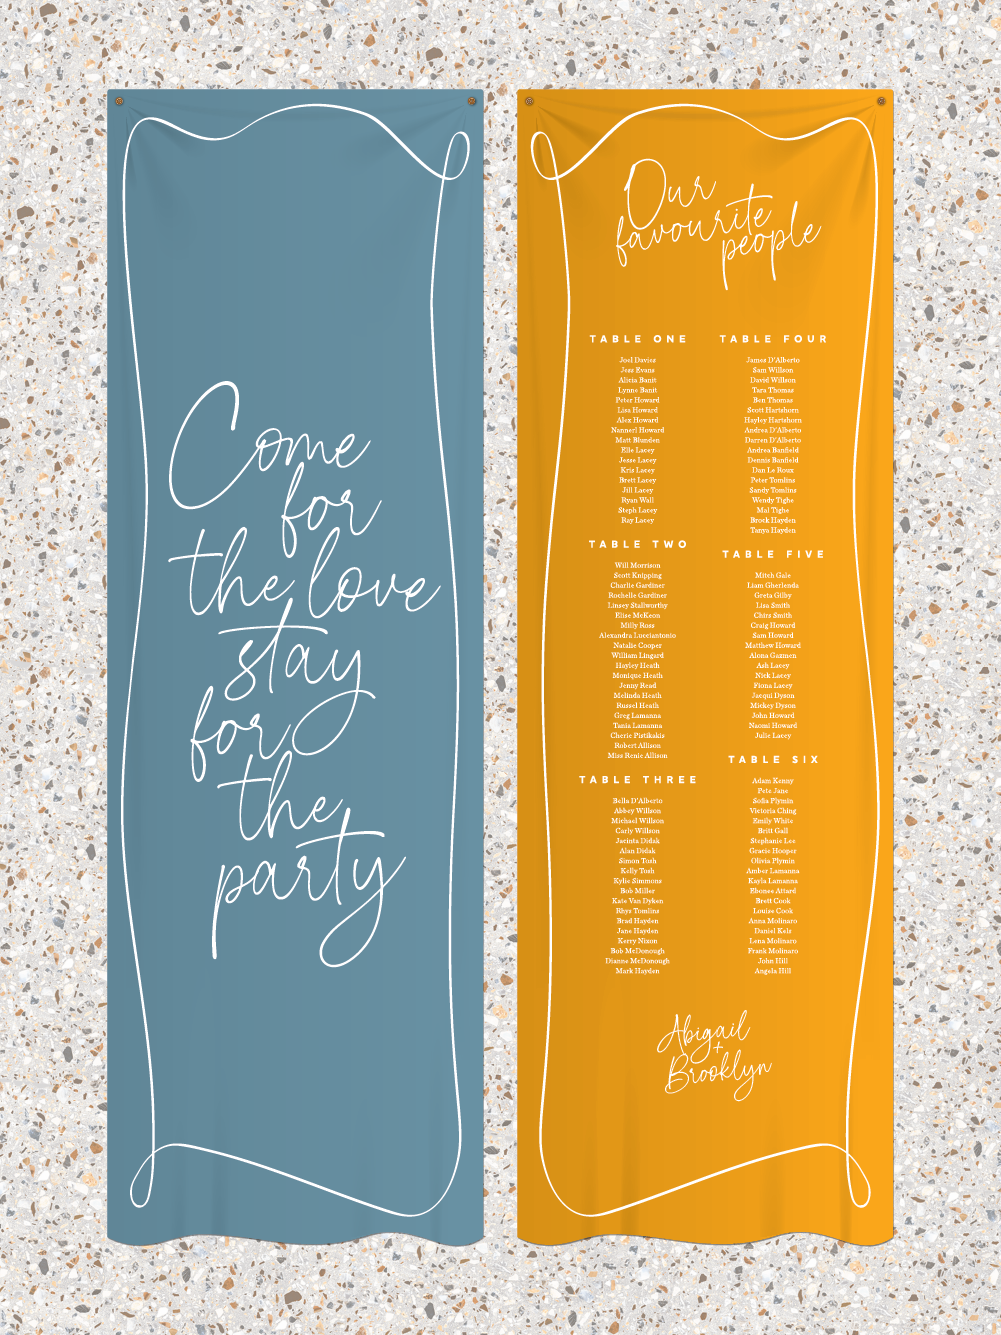 Come
for
the love
stay
for
the
party
Our
favourite
people
TABLE ONE
Joel Davies
Jess Evans
Alicia Banit
Lynne Banit
Peter Howard
Lisa Howard
Alex Howard
Nannerl Howard
Matt Blunden
Elle Lacey
Jesse Lacey
Kris Lacey
Brett Lacey
Jill Lacey
Ryan Wall
Steph Lacey
Ray Lacey
TABLE TWO
Will Morrison
Scott Knipping
Charlie Gardiner
Rochelle Gardiner
Linsey Stallworthy
Elise McKeon
Milly Ross
Alexandra Lucciantonio
Natalie Cooper
William Lingard
Hayley Heath
Monique Heath
Jenny Read
Melinda Heath
Russel Heath
Greg Lamanna
Tania Lamanna
Cherie Pistikakis
Robert Allison
Miss Renie Allison
TABLE THREE
Bella D'Alberto
Abbey Willson
Michael Willson
Carly Willson
Jacinta Didak
Alan Didak
Simon Tosh
Kelly Tosh
Kylie Simmons
Bob Miller
Kate Van Dyken
Rhys Tomlins
Brad Hayden
Jane Hayden
Kerry Nixon
Bob McDonough
Dianne McDonough
Mark Hayden
TABLE FOUR
James D'Alberto
Sam Willson
David Willson
Tara Thomas
Ben Thomas
Scott Hartshorn
Hayley Hartshorn
Andrea D'Alberto
Darren D'Alberto
Andrea Banfield
Dennis Banfield
Dan Le Roux
Peter Tomlins
Sandy Tomlins
Wendy Tighe
Mal Tighe
Brock Hayden
Tanya Hayden
TABLE FIVE
Mitch Gale
Liam Gherlenda
Greta Gilby
Lisa Smith
Chirs Smith
Craig Howard
Sam Howard
Matthew Howard
Alona Gazmen
Ash Lacey
Nick Lacey
Fiona Lacey
Jacqui Dyson
Mickey Dyson
John Howard
Naomi Howard
Julie Lacey
TABLE SIX
Adam Kenny
Pete Jane
Sofia Plymin
Victoria Ching
Emily White
Britt Gall
Stephanie Lee
Gracie Hooper
Olivia Plymin
Amber Lamanna
Kayla Lamanna
Ebonee Attard
Brett Cook
Louise Cook
Anna Molinaro
Daniel Kels
Lena Molinaro
Frank Molinaro
John Hill
Angela Hill
Abigail
+
Brooklyn